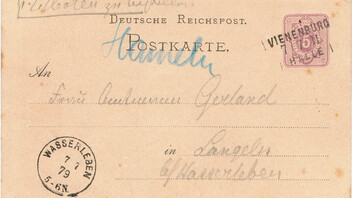 DEUTSCHE REICHSPOST.
POSTKARTE.
Hameln
VIENENBURG
An
Frau Amtmann Gerland
in Langeln
b/Wasserleben
WASSERLEBEN
7 7
79
5-6N.